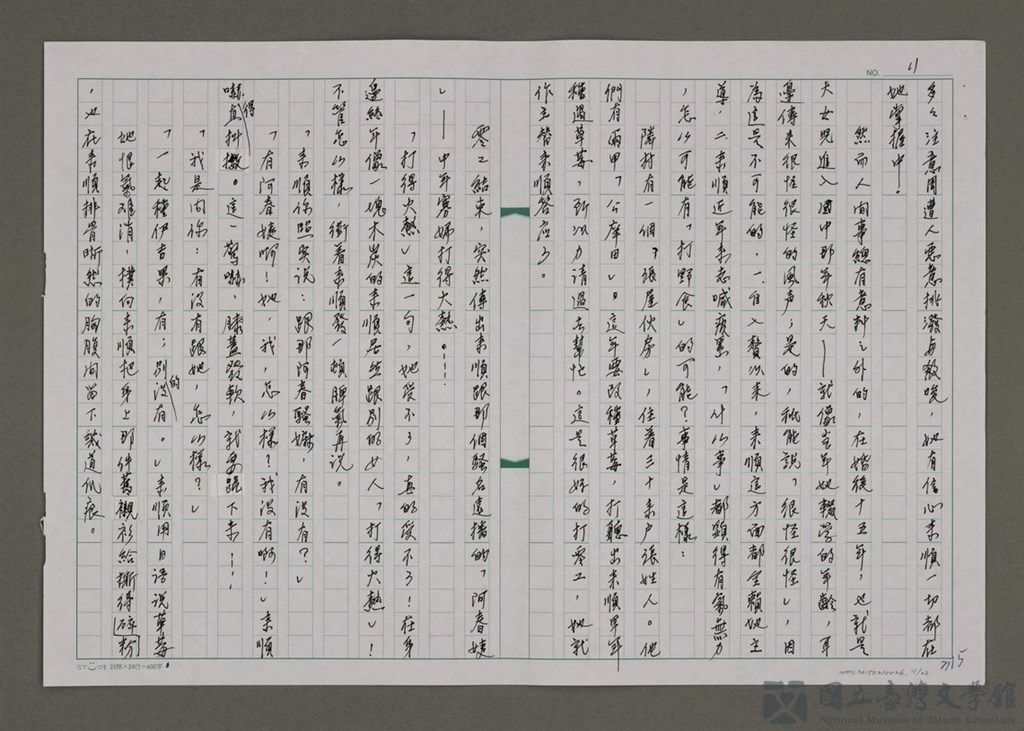 NO. 11
多々注意周遭人惡意挑潑與教唆,她有信心來順一切都在
她掌握中!
然而人間事總有意料之外的,在婚後十五年,也就是
大女兒進入國中那年秋天——就像當年她輟學的年齡,耳
邊傳來很怪很怪的風声;是的,祇能說「很怪很怪」,因
為這是不可能的。一、自入贅以來,來順這方面都全賴她主
導,二、來順近年來老喊疲累,「什么事」都顯得有氣無力
,怎么可能有「打野食」的可能?事情是這樣:
隣村有一個「張屋伙房」,住着三十來户張姓人。他
們有兩甲「公庠田」。這年要改種草莓,打聽出來順早年
種過草莓,所以力請過去幫忙。這是很好的打零工,她就
作主替來順答应了。
零工結束,突然傳出來順跟那個騷名遠播的「阿春嫂
」——中年寡婦打得火熱。……
「打得火熱」這一句,她受不了,真的受不了!在身
邊終年像一塊木炭的來順居然跟別的女人「打得火熱」!
不管怎么樣,衝着來順發一頓脾氣再說。
「來順你照实说:跟那阿春騷嫲,有沒有?」
「有阿春嫂啊!她,我,怎么樣?我沒有啊!」來順
嚇得直抖擻。這一驚嚇,膝蓋發軟,就要跪下來……
「我是问你:有没有跟她,怎么樣?」
「一起種伊吉果,有;別的沒有。」來順用日語说草莓
她恨氣难消,撲向來順把身上那件舊襯衫給撕得碎粉
,也在來順排骨晰然的胸腹间留下幾道爪痕。
ST 25横×24行=600字
國立臺灣文學館
National Museum of Taiwan Literature